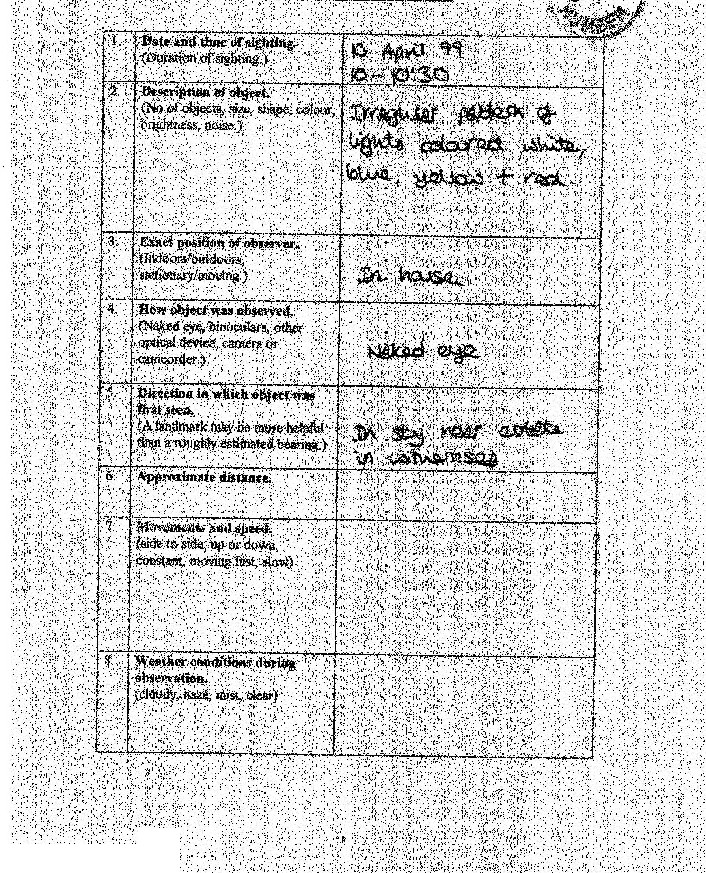 1. Date and time of sighting.
(Duration of sighting.)
10 April 99
10 - 10:30
2. Description of object.
(No of objects, size, shape, colour,
brightness, noise.)
Irregular pattern of
lights coloured white,
blue, yellow + red
3. Exact position of observer.
(Indoors/outdoors,
stationary/moving.)
In house
4. How object was observed.
(Naked eye, binoculars, other
optical device, camera or
camcorder.)
Naked eye
5. Direction in which object was
first seen.
(A landmark may be more helpful
than a roughly estimated bearing.)
In sky near estate
in
6. Approximate distance.
7. Movements and speed.
(side to side, up or down,
constant, moving fast, slow)
8. Weather conditions during
observation.
(cloudy, haze, mist, clear)